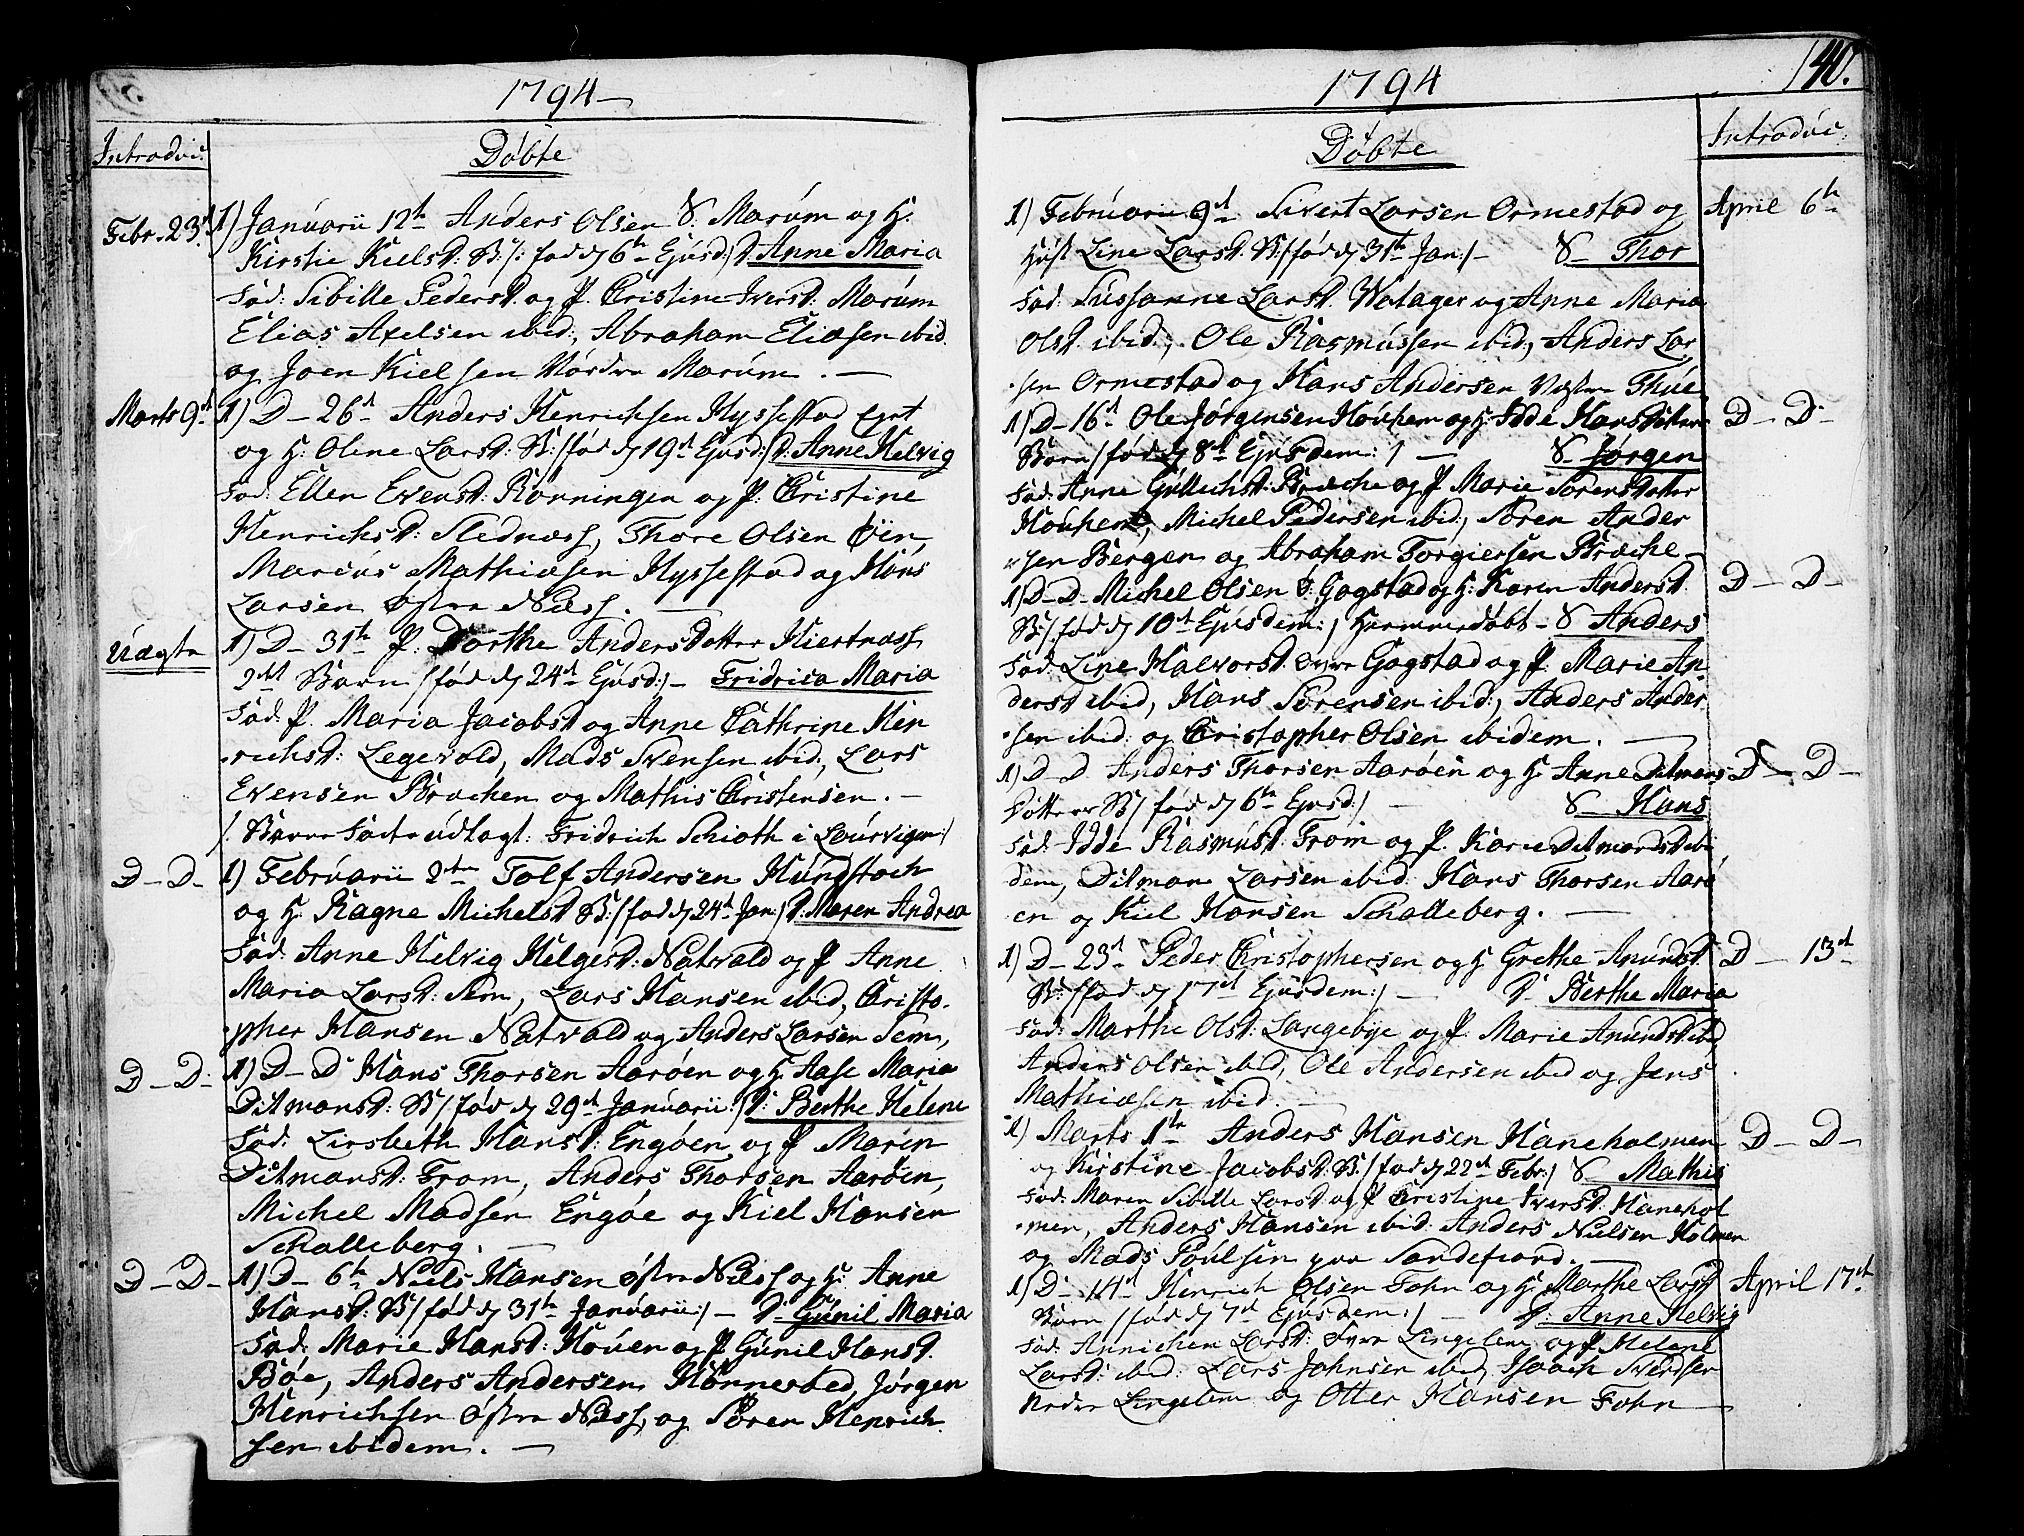 1794
Introduc:
Döbte
Febr. 23d
1) Januarii 12te Anders Olsen S. Marum og H.
Kirstie Kielsd: B: /: fød d 6te Ejusd:/ P. Anne Maria
Fad: Sibille Pedersd og P. Cristine Iversd: Marum
Elias Axelsen ibid:, Abraham Eliasen ibid.
og Joen Kielsen Nordre Marum. —
Marts 9d
1) D – 26d Anders Henrichsen Hyssestad
og H: Olene Larsd: B: /fød d 19d Ejusd:/ P: Anne Helvig
Fad: Ellen Evensd: Rønningen og P: Cristine
Henrichsd: Slednæss, Thore Olsen Öin
Marcus Mathiæsen Hyssestad og Hans
Larsen østre Næss. —
Uægte
1) D – 31te P. Dorthe Anders Datter Hiertnæss
2det Barn /fød d 24d Ejusd:/ – Fridrica Maria
Fad: P. Maria Jacobsd og Anne Cathrine Hen
richsd: Legevold, Mads Svensen ibid:, Lars
Evensen Brachen og Mathis Cristensen. —
/. Barne Fader udlagt: Fridrich Schiøth i Lourvigen:/
D – D –
1) Februarii 2den Tolf Andersen Hundstoch
og H. Ragne Michelsd B: /fød d 24d Jan:/ P: Maren Andrea
Fad: Anne Helvig Helgesd: Natvald og P. Anne
Maria Larsd: Sem, Lars Hansen ibid, Cristo-
pher Hansen Natvald og Anders Larsen Sem,
D – D –
1) D – D Hans Thorsen Aarøen og H. Aase Maria
Ditmansd: B: /fød d 29d Januarii:/ P: Berthe Helene
Fad: Lirsbeth Hansd: Engøen og P Maren
Ditmansd: From, Anders Thorsen Aarøen,
Michel Madsen Engøe og Kiel Hansen
Schalleberg. —
D – D –
1) D – 6te Niels Hansen østre Næss og H: Anne
Hansd: B: /fød d 31te Januarii:/ – P. Gunil Maria
Fad: Marie Hansd: Houen og P Gunil Hansd.
Bøe, Anders Andersen Hønnested, Jørgen
Henrichsen østre Næss, og Søren Henrich
sen ibidem. —
1794
140.
Döbte
Introduc:
1) Februarii 9d Sivert Larsen Ormestad og
April 6te
Hust Line Larsd. B: /fød d 31te Jan:/ – S – Thor
Fad: Sussanne Larsd. Watager og Anne Maria
Olsd. ibid:, Ole Rasmussen ibid:, Anders Lar
sen Ormestad og Hans Andersen Vestre Thue
1) D – 16d Ole Jørgensen Houhem og H: Idde Hansdatters
D – D –
Barn /fød d 8d Ejusdem:/ — S – Jørgen
Fad: Anne Gullichsd: Brache og P Marie Sørensdatter
Houhem, Michel Pedersen ibid:, Søren Ander
sen Bergen og Abraham Torgiersen Brache –
1) D – D – Michel Olsen Ø: Gogstad og H: Karen Andersd.
D – D –
B: /fød d 10d Ejusdem:/ Hiemmedøbt – S Anders
Fad: Line Halvorsd. Gogstad og P. Marie An-
dersd ibid, Hans Sørensen ibid:, Anders Ander
sen ibid: og Cristopher Olsen ibidem. —
1) D – D Anders Thorsen Aarøen og H. Anne Ditmans
D – D –
Datter B: /fød d 6te Ejusd:/ — S – Hans
Fad: Idde Rasmusd: From og P. Karen Ditmansd ibi
dem, Ditman Larsen ibid. Hans Thorsen Aarø
en og Kiel Hansen Schalleberg. —
1) D – 23d Peder Cristophersen og H Grethe Anundsd:
D – 13d
B: /fød d 17d Ejusdem:/ — P. Berthe Maria
Fad: Marthe Olsd: Langebye og P. Marie Anundsd ibid
Anders Olsen ibid, Ole Andersen ibid og Jens
Mathiæsen ibid. —
1) Marts 1te Anders Hansen Haneholmen
D – D –
og Kirstine Jacobsd: B: /fød d 22d Febr:/ S – Mathis
Fad: Maren Sibille Larsd. og P Cristine Iversd: Hanehol
men, Anders Hansen ibid: Anders Nielsen Holmen
og Mads Poulsen paa Sandefiord. —
1) D – 14d Henrich Olsen Fohn og H. Marthe Larsd
April 17d
Barn /fød d 7d Ejusdem:/ — P. Anne Helvig
Fad: Annichen Larsd: Lingelem og P Helene
Larsd: ibid: Lars Johnsen ibid, Isaach Svendsen
Nedre Lingelem og Otter Hansen Fohn —